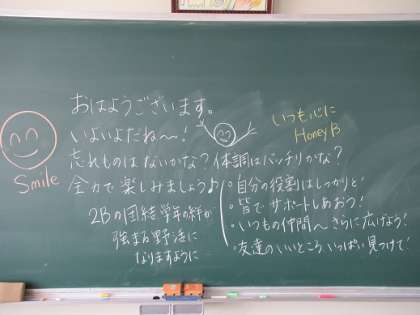 おはようございます。
いよいよだね〜!
忘れものはないかな?体調はバッチリかな?
全力で楽しみましょう♪
2Bの団結学年の絆が
強まる野活に
なりますように
いつも心に
Honey B
・自分の役割はしっかりと!
・皆でサポートしあおう!
・いつもの仲間〜さらに広げよう!
・友達のいいところいっぱい見つけて
Smile